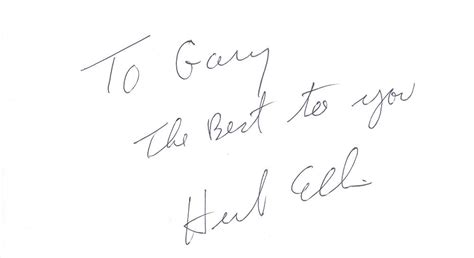 To Gary
The Best to you
Herb Ellis